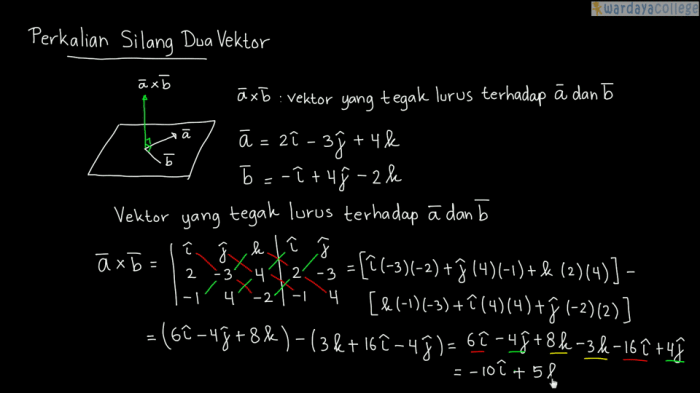 wardayacollege
Perkalian Silang Dua Vektor
a̅ × b̅
a̅
b̅
a̅×b̅ : vektor yang tegak lurus terhadap a̅ dan b̅
a̅ = 2î − 3ĵ + 4k
b̅ = −î + 4ĵ − 2k
Vektor yang tegak lurus terhadap a̅ dan b̅
a̅ × b̅ = | î ĵ k | î ĵ
2 -3 4 | 2 -3 = [î(-3)(-2) + ĵ(4)(-1) + k(2)(4)] −
-1 4 -2 | -1 4 [k(-1)(-3) + î(4)(4) + ĵ(-2)(2)]
= (6î − 4ĵ + 8k) − (3k + 16î − 4ĵ) = 6î − 4ĵ + 8k − 3k − 16î + 4ĵ
= −10î + 5k